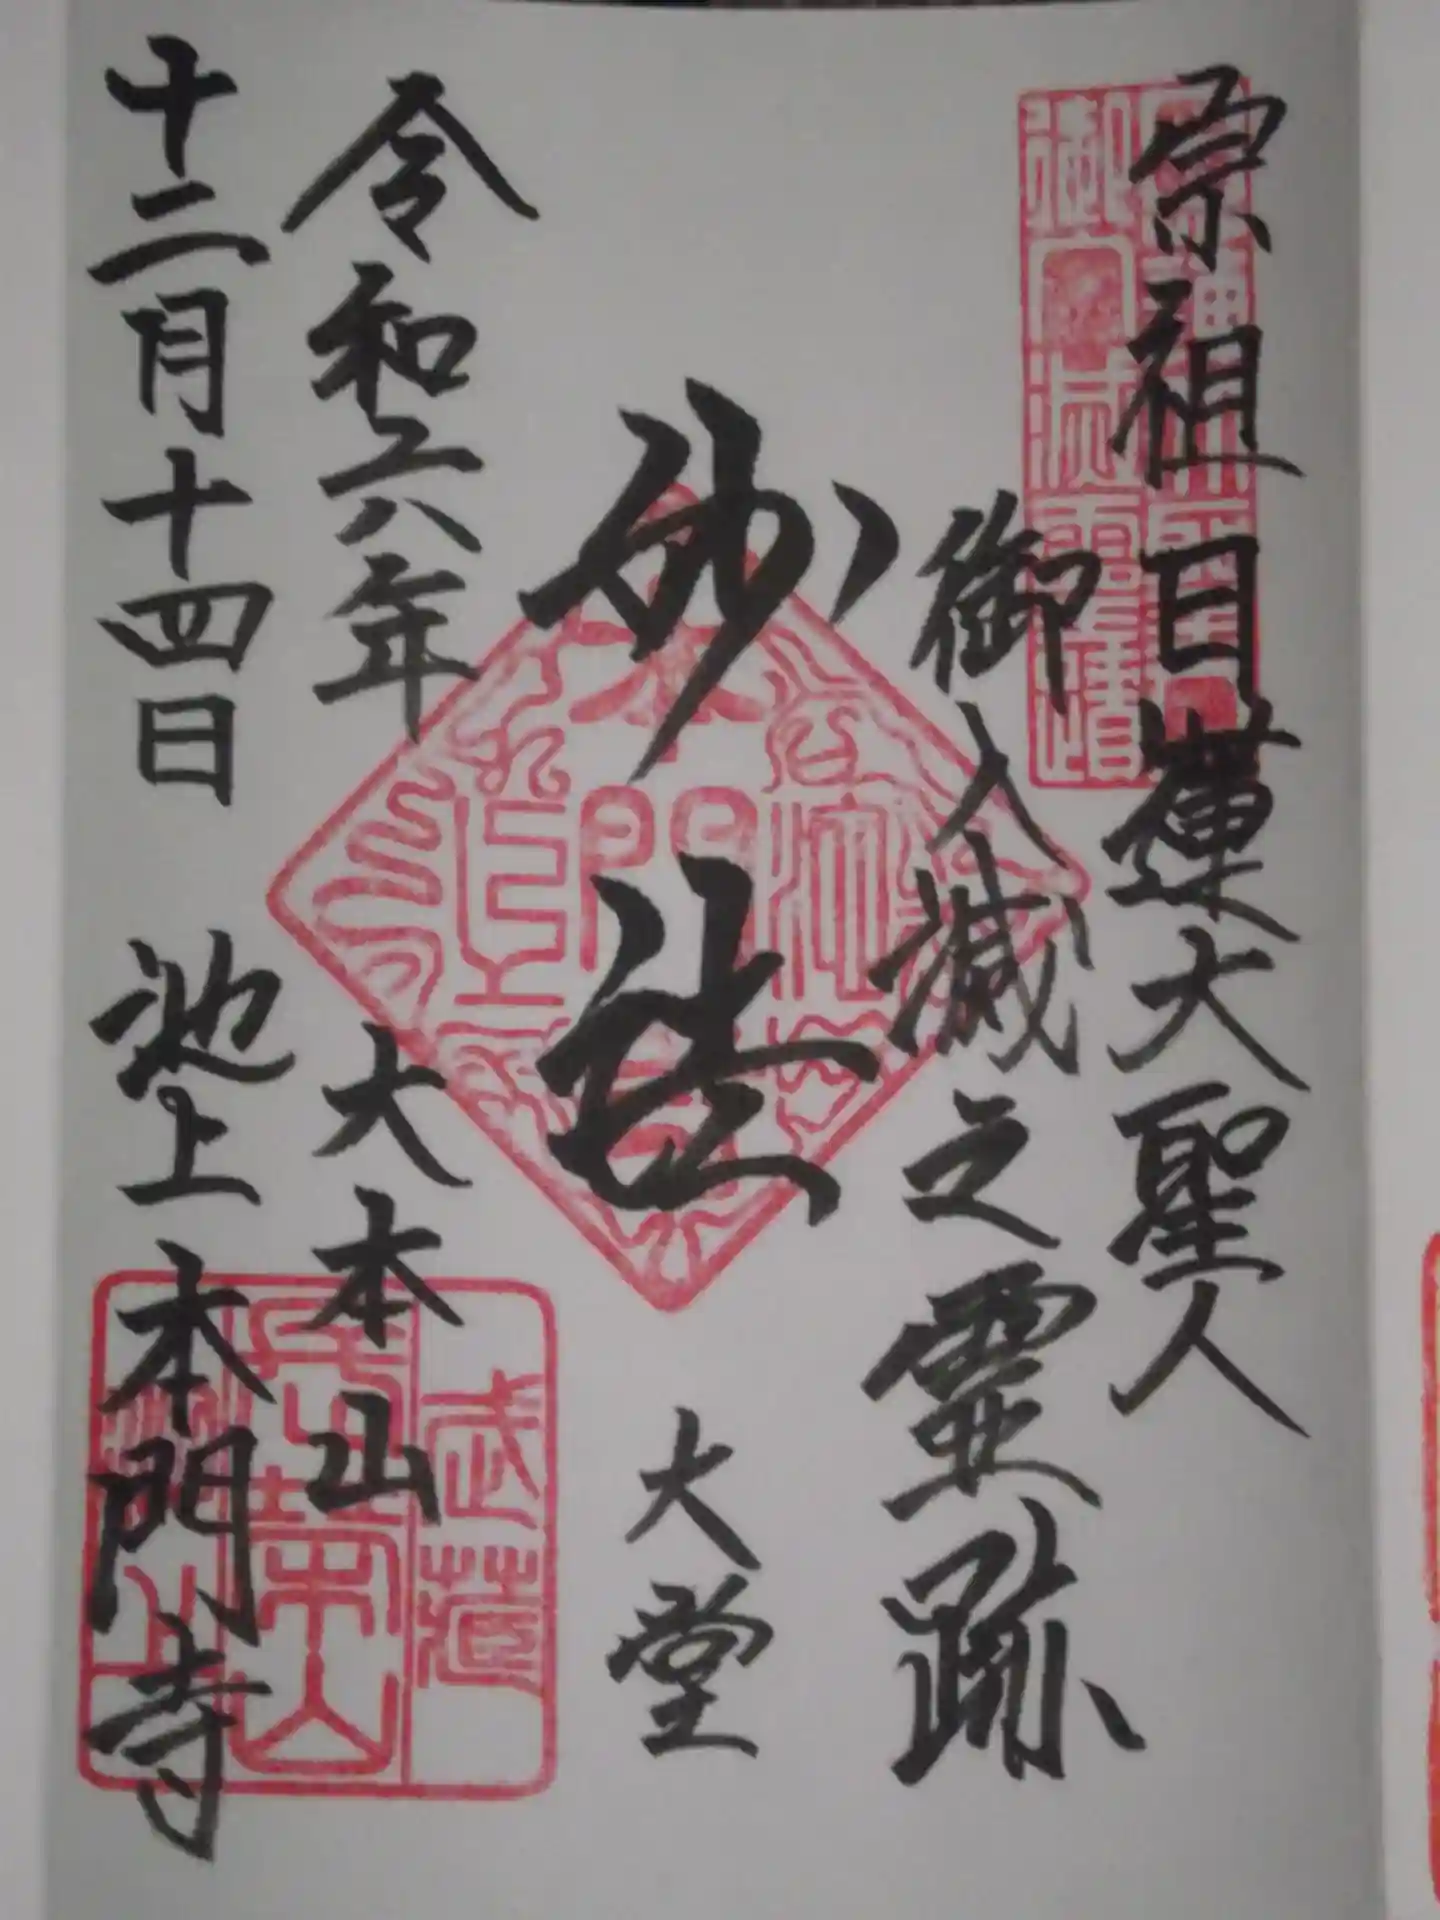 宗祖日蓮大聖人
御入滅之霊跡
妙法
大堂
令和六年
十二月十四日
大本山
池上本門寺
武蔵